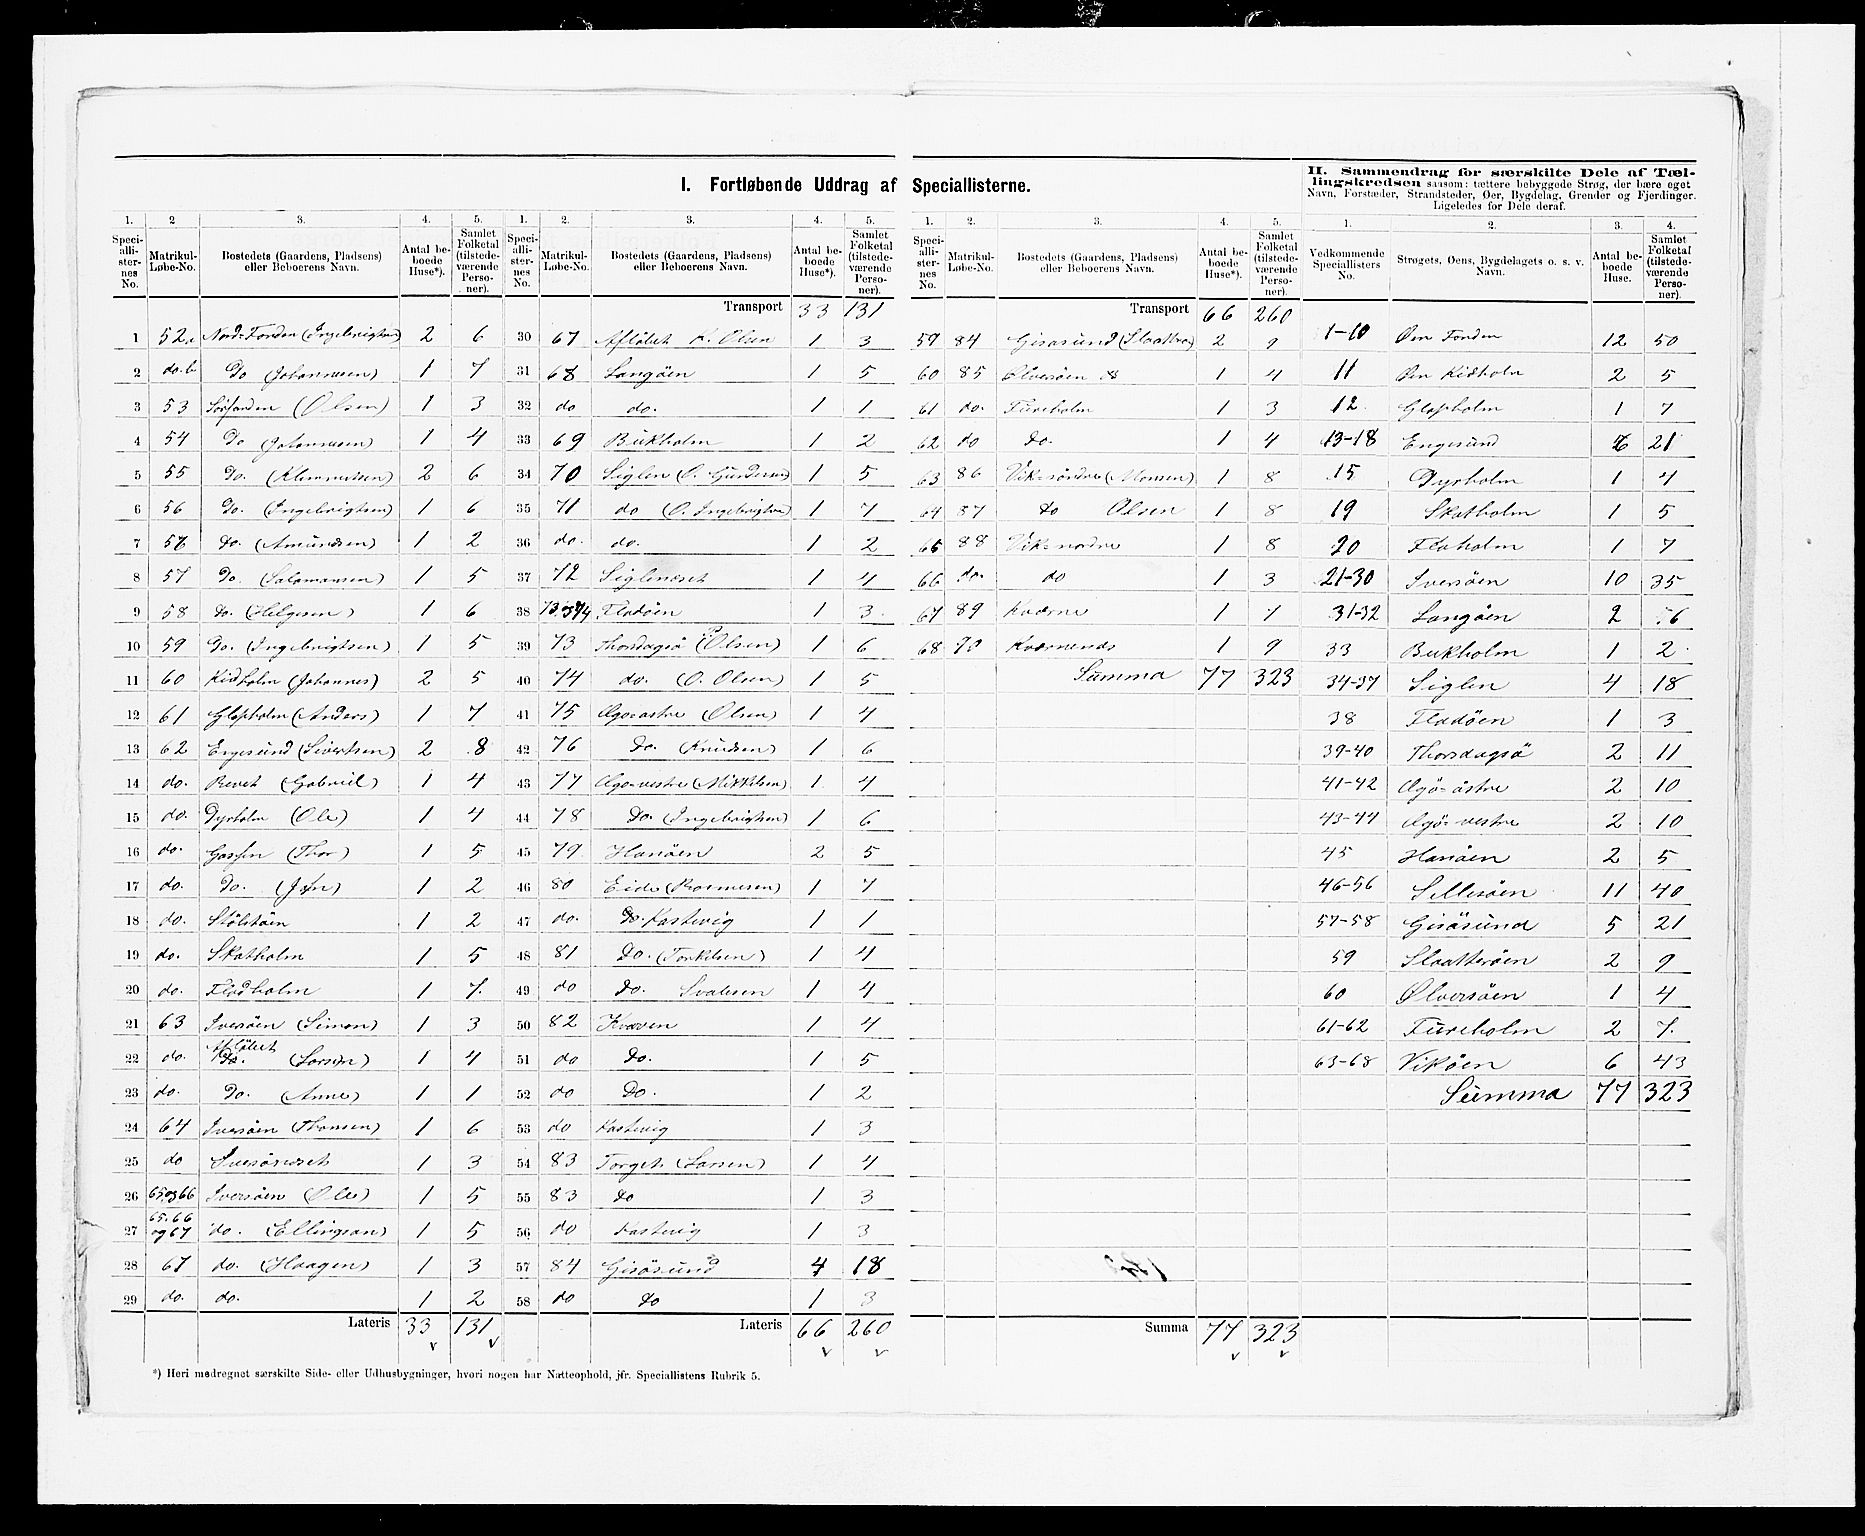 I. Fortløbende Uddrag af Speciallisterne.
II. Sammendrag for særskilte Dele af Tæl-
lingskredsen saasom: tættere bebyggede Strøg, der bære eget
Navn, Forstæder, Strandsteder, Øer, Bygdelag, Grender og Fjerdinger.
Ligeledes for Dele deraf.
1. 2 3. 4. 5. 1. 2. 3. 4. 5. 1. 2. 3. 4. 5. 1. 2. 3. 4.
Speci-alli-ster-nes No. Matrikul-Løbe-No. Bostedets (Gaardens, Pladsens) eller Beboerens Navn. Antal be-boede Huse*). Samlet Folketal (tilstede-værende Perso-ner).
Speci-alli-ster-nes No. Matrikul-Løbe-No. Bostedets (Gaardens, Pladsens) eller Beboerens Navn. Antal be-boede Huse*). Samlet Folketal (tilstede-værende Perso-ner).
Speci-alli-ster-nes No. Matrikul-Løbe-No. Bostedets (Gaardens, Pladsens) eller Beboerens Navn. Antal be-boede Huse*). Samlet Folketal (tilstede-værende Perso-ner).
Vedkommende Speciallisters No. Strøgets, Øens, Bygdelagets o. s. v. Navn. Antal be-boede Huse. Samlet Folketal (tilstede-værende Perso-ner).
1 52a Nord-Fonden (Ingebrigtsen) 2 6
2 do. b Do (Johannesen) 1 7
3 53 Sørfonden (Olsen) 1 3
4 54 Do (Johannesen) 1 4
5 55 Do. (Klemmetsen) 2 6
6 56 Do. (Ingebrigtsen) 1 6
7 56 Do. (Amundsen) 1 2
8 57 Do. (Salamonsen) 1 5
9 58 Do. (Helgesen) 1 6
10 59 Do. (Ingebrigtsen) 1 5
11 60 Kidholm (Johannes) 2 5
12 61 Glopholm (Anders) 1 7
13 62 Engesund (Sivertsen) 2 8
14 do. Revet (Gabriel) 1 4
15 do. Dyrholm (Ole) 1 4
16 do. (Thor) 1 5
17 do. Do. 1 2
18 do. Stølstøen 1 2
19 do. Skatholm 1 5
20 do. Flodholm 1 7.
21 63 Iversöen (Simon) 1 3
22 do. Afløbet Do. 1 4
23 do. Do. (Anne) 1 1
24 64 Iversöen (Thomsen) 1 6
25 do Iversöneset 1 3
26 65 og 66 Iversöen (Ole) 1 5
27 65. 66 og 67 do. (Ellingsen) 1 5
28 67 do. (Haagen) 1 3
29 do. do. 1 2
Lateris 33 131
Transport 33 131
30 67 Afløbet K. Olsen 1 3
31 68 Langöen 1 5
32 do do. 1 1
33 69 Bukholm 1 2
34 70 Siglen (O. Gundersen) 1 5
35 71 do (O. Ingebrigtsen) 1 7
36 do. do. 1 2
37 72 Siglenæset 1 4
38 73. og 74 Fladöen 1 3
39 73 Thorsdagsö (P Olsen) 1 6
40 74 do. (O. Olsen) 1 5
41 75 Ægö-østre (Olsen) 1 4
42 76 Do. (Knudsen) 1 6
43 77 Ægö-vestre (Mikkelsen) 1 4
44 78 Do. (Ingebrigtsen) 1 6
45 79 Hanöen 2 5
46 80 Eide (Rasmusen) 1 7
47 do. Do. Kastevig 1 1
48 81 Do. (Torkilsen) 1 4
49 do Do. 1 4
50 82 Kværn 1 4
51 do Do. 1 5
52 do Do. 1 2
53 do Kastevig 1 3
54 83 Torget (Larsen) 1 4
55 83 Do 1 3
56 do Kastevig 1 3
57 84 Gisösund 4 18
58 do Do 1 3
Lateris 66 260
Transport 66 260
59 84 Gisösund (Slaatterø) 2 9
60 85 Ølversöen 1 4
61 do. Fureholm 1 3
62 do Do. 1 4
63 86 Vik-søndre (Monsen) 1 8
64 87 Do Olsen 1 8
65 88 Vik-nordre 1 8
66 do. do 1 3
67 89 Kværne 1 7
68 90 Kværnenes 1 9
Summa 77 323
Summa 77 323
1-10 Øen Fonden 12 50
11 Øen Kidholm 2 5
12. Glopholm 1 7
13-18 Engesund 21
15 Dyrholm 1 4
19 Skatholm 1 5
20 Floholm 1 7
21-30 Iversöen 10 35
31-32 Langöen 2 6
33 Bukholm 1 2
34-37 Siglen 4 18
38 Fladöen 1 3
39-40 Thorsdagsö 2 11
41-42 Ægö-østre 2 10
43-44 Ægö-vestre 2 10
45 Hanöen 2 5
46-56 Sillesöen 11 40
57-58 Gisösund 5 21
59 Slaatteröen 2 9
60 Ølversöen 1 4
61-62 Fureholm 2 7.
63-68 Viköen 6 43
Summa 77 323
*) Heri medregnet særskilte Side- eller Udhusbygninger, hvori nogen har Natteophold, jfr. Speciallistens Rubrik 5.